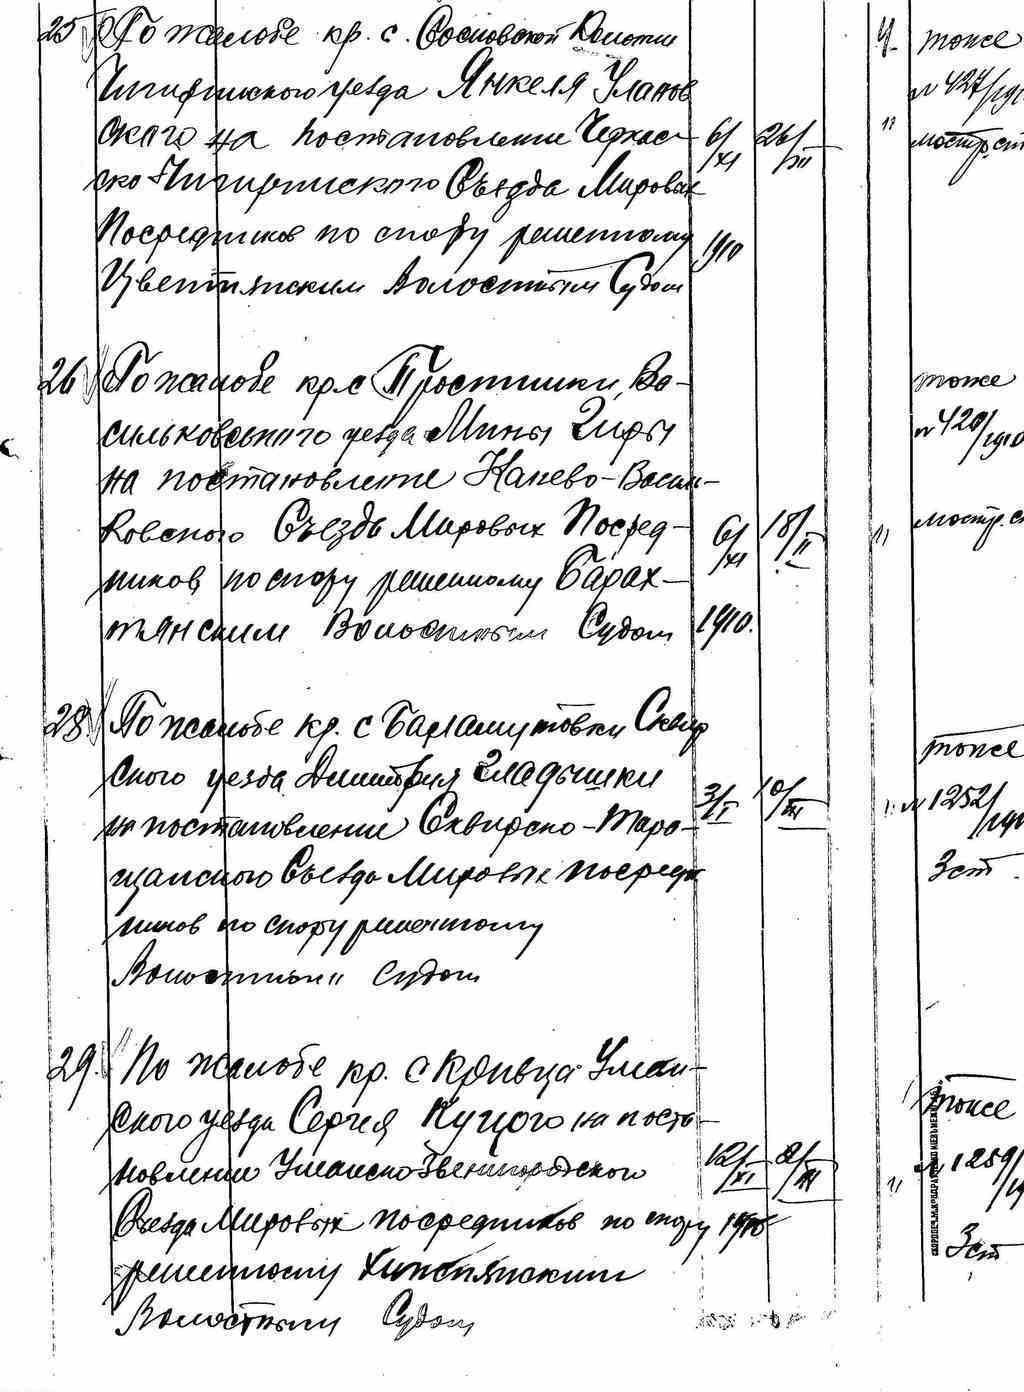 25 По жалобе кр. с. Сосновской Волости
Чигиринского уезда Янкеля Уланов
ского на постановление Черкас-
ско-Чигиринского Съезда Мировых
Посредников по спору решенному
Цветнянским Волостным Судом
6/XI 26/III
1910
тоже
№ 427/191
26 По жалобе кр. с Простишки, Ва-
сильковского уезда Мины Чиры
на постановление Канево-Василь-
ковского Съезда Мировых Посред-
ников, по спору решенному Барах-
тянским Волостным Судом
6/XI 18/II
1910.
тоже
№ 420/1910
28. По жалобе кр. с Баламутовки Сквир
ского уезда Димитрия Гладышки
на постановление Сквирско-Тара-
щанского Съезда Мировых посред
ников по спору решенному
Волостным Судом
3/I 10/III
тоже
№ 1252/191
3 ст.
29. По жалобе кр. с Кривца Уман-
ского уезда Сергея Куцого на поста-
новление Уманско-Звенигородского
Съезда Мировых посредников по спору
решенному
Волостным Судом
12/XI 8/III
1910
тоже
№ 1259/19
3 ст